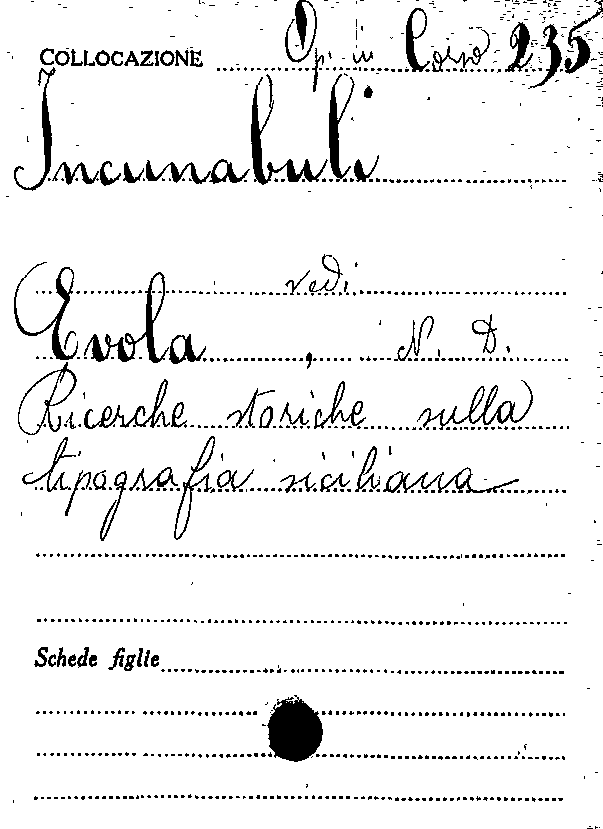 COLLOCAZIONE Op. in Corso 235
Incunabuli
vedi
Evola, N. D.
Ricerche storiche sulla
tipografia siciliana
Schede figlie